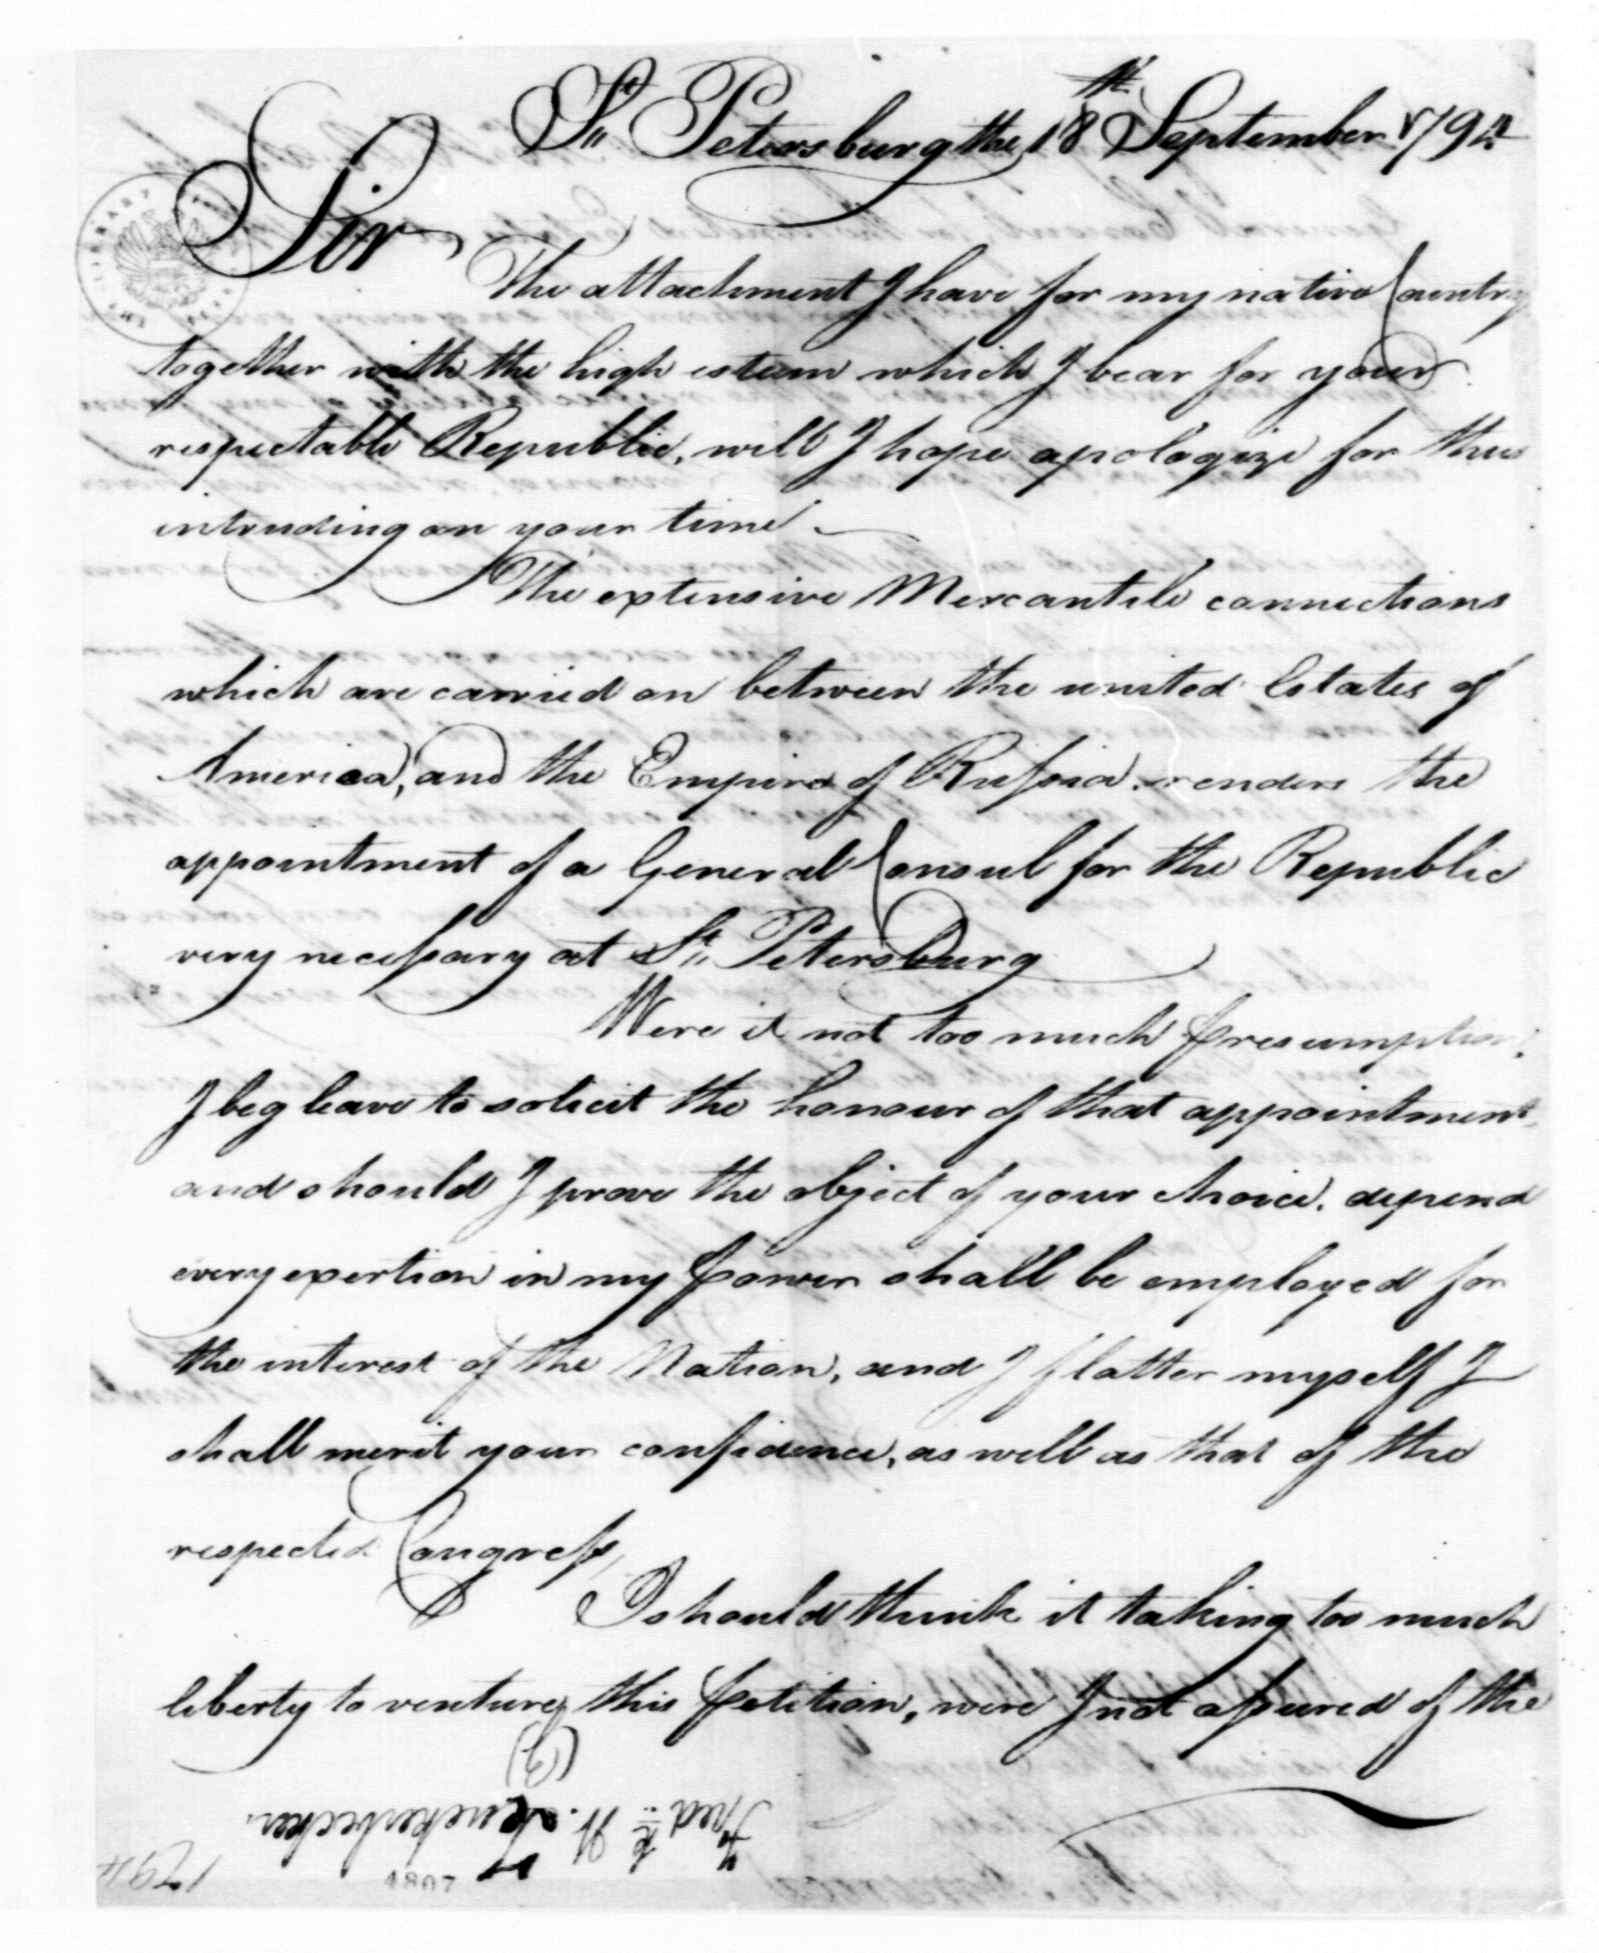 St. Petersburg the 18th September 1794
Sir
The attachment I have for my native Country
together with the high esteem which I bear for your
respectable Republic, will I hope apologize for thus
intruding on your time
The extensive Mercantile connections
which are carried on between the united Estates of
America, and the Empire of Russia renders the
appointment of a General Consul for the Republic
very necessary at St. Petersburg
Were it not too much presumption,
I beg leave to solicit the honour of that appointment,
and should I prove the object of your choice, depend
every exertion in my power shall be employed for
the interest of the Nation, and I flatter myself I
shall merit your confidence, as well as that of the
respected Congress,
I should think it taking too much
liberty to venture this petition, were I not assured of the
(3)
Fredk. W.
1807
1794